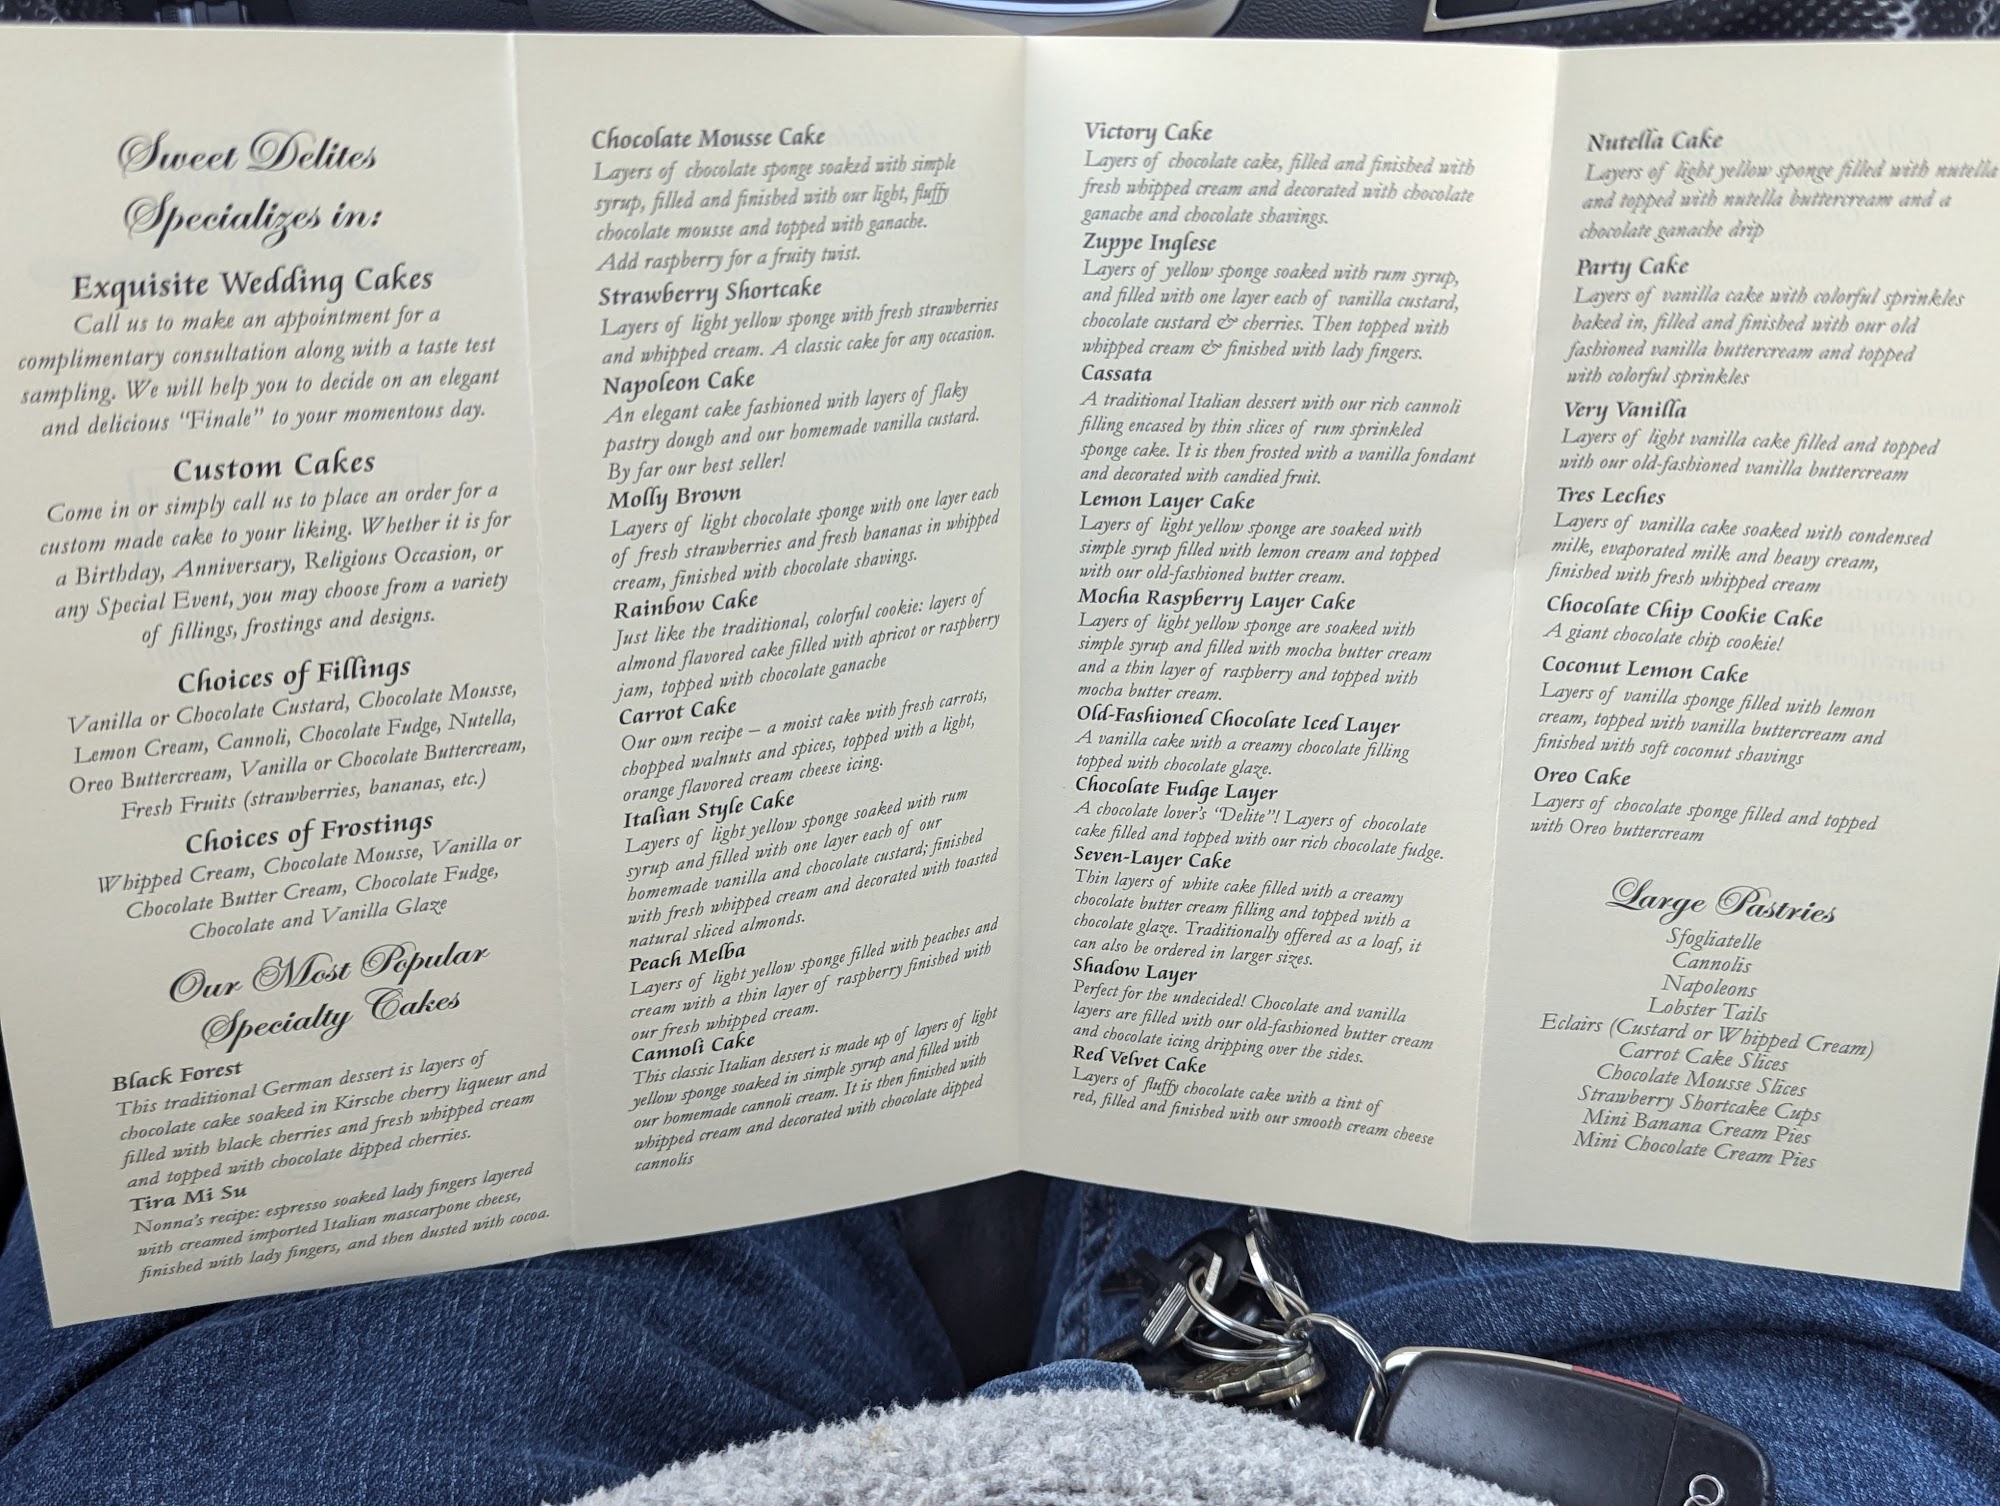 Sweet Delites
Specializes in:
Exquisite Wedding Cakes
Call us to make an appointment for a
complimentary consultation along with a taste test
sampling. We will help you to decide on an elegant
and delicious "Finale" to your momentous day.
Custom Cakes
Come in or simply call us to place an order for a
custom made cake to your liking. Whether it is for
a Birthday, Anniversary, Religious Occasion, or
any Special Event, you may choose from a variety
of fillings, frostings and designs.
Choices of Fillings
Vanilla or Chocolate Custard, Chocolate Mousse,
Lemon Cream, Cannoli, Chocolate Fudge, Nutella,
Oreo Buttercream, Vanilla or Chocolate Buttercream,
Fresh Fruits (strawberries, bananas, etc.)
Choices of Frostings
Whipped Cream, Chocolate Mousse, Vanilla or
Chocolate Butter Cream, Chocolate Fudge,
Chocolate and Vanilla Glaze
Our Most Popular
Specialty Cakes
Black Forest
This traditional German dessert is layers of
chocolate cake soaked in Kirsche cherry liqueur and
filled with black cherries and fresh whipped cream
and topped with chocolate dipped cherries.
Tira Mi Su
Nonna's recipe: espresso soaked lady fingers layered
with creamed imported Italian mascarpone cheese,
finished with lady fingers, and then dusted with cocoa.
Chocolate Mousse Cake
Layers of chocolate sponge soaked with simple
syrup, filled and finished with our light, fluffy
chocolate mousse and topped with ganache.
Add raspberry for a fruity twist.
Strawberry Shortcake
Layers of light yellow sponge with fresh strawberries
and whipped cream. A classic cake for any occasion.
Napoleon Cake
An elegant cake fashioned with layers of flaky
pastry dough and our homemade vanilla custard.
By far our best seller!
Molly Brown
Layers of light chocolate sponge with one layer each
of fresh strawberries and fresh bananas in whipped
cream, finished with chocolate shavings.
Rainbow Cake
Just like the traditional, colorful cookie: layers of
almond flavored cake filled with apricot or raspberry
jam, topped with chocolate ganache
Carrot Cake
Our own recipe – a moist cake with fresh carrots,
chopped walnuts and spices, topped with a light,
orange flavored cream cheese icing.
Italian Style Cake
Layers of light yellow sponge soaked with rum
syrup and filled with one layer each of our
homemade vanilla and chocolate custard; finished
with fresh whipped cream and decorated with toasted
natural sliced almonds.
Peach Melba
Layers of light yellow sponge filled with peaches and
cream with a thin layer of raspberry finished with
our fresh whipped cream.
Cannoli Cake
This classic Italian dessert is made up of layers of light
yellow sponge soaked in simple syrup and filled with
our homemade cannoli cream. It is then finished with
whipped cream and decorated with chocolate dipped
cannolis
Victory Cake
Layers of chocolate cake, filled and finished with
fresh whipped cream and decorated with chocolate
ganache and chocolate shavings.
Zuppe Inglese
Layers of yellow sponge soaked with rum syrup,
and filled with one layer each of vanilla custard,
chocolate custard & cherries. Then topped with
whipped cream & finished with lady fingers.
Cassata
A traditional Italian dessert with our rich cannoli
filling encased by thin slices of rum sprinkled
sponge cake. It is then frosted with a vanilla fondant
and decorated with candied fruit.
Lemon Layer Cake
Layers of light yellow sponge are soaked with
simple syrup filled with lemon cream and topped
with our old-fashioned butter cream.
Mocha Raspberry Layer Cake
Layers of light yellow sponge are soaked with
simple syrup and filled with mocha butter cream
and a thin layer of raspberry and topped with
mocha butter cream.
Old-Fashioned Chocolate Iced Layer
A vanilla cake with a creamy chocolate filling
topped with chocolate glaze.
Chocolate Fudge Layer
A chocolate lover's "Delite"! Layers of chocolate
cake filled and topped with our rich chocolate fudge.
Seven-Layer Cake
Thin layers of white cake filled with a creamy
chocolate butter cream filling and topped with a
chocolate glaze. Traditionally offered as a loaf, it
can also be ordered in larger sizes.
Shadow Layer
Perfect for the undecided! Chocolate and vanilla
layers are filled with our old-fashioned butter cream
and chocolate icing dripping over the sides.
Red Velvet Cake
Layers of fluffy chocolate cake with a tint of
red, filled and finished with our smooth cream cheese
Nutella Cake
Layers of light yellow sponge filled with nutella
and topped with nutella buttercream and a
chocolate ganache drip
Party Cake
Layers of vanilla cake with colorful sprinkles
baked in, filled and finished with our old
fashioned vanilla buttercream and topped
with colorful sprinkles
Very Vanilla
Layers of light vanilla cake filled and topped
with our old-fashioned vanilla buttercream
Tres Leches
Layers of vanilla cake soaked with condensed
milk, evaporated milk and heavy cream,
finished with fresh whipped cream
Chocolate Chip Cookie Cake
A giant chocolate chip cookie!
Coconut Lemon Cake
Layers of vanilla sponge filled with lemon
cream, topped with vanilla buttercream and
finished with soft coconut shavings
Oreo Cake
Layers of chocolate sponge filled and topped
with Oreo buttercream
Large Pastries
Sfogliatelle
Cannolis
Napoleons
Lobster Tails
Eclairs (Custard or Whipped Cream)
Carrot Cake Slices
Chocolate Mousse Slices
Strawberry Shortcake Cups
Mini Banana Cream Pies
Mini Chocolate Cream Pies